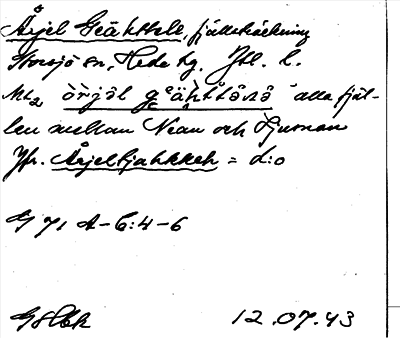 Årjel Geähttele, fjällsträckning
Storsjö sn, Hede tg. Jtl. l.
Mt2 òrjəl geähttəlē "alla fjäl-
len mellan Nean och Ljusnan
Jfr. Årjeltjahkkeh = d:o
G 71 A-C:4-6
12.07.43